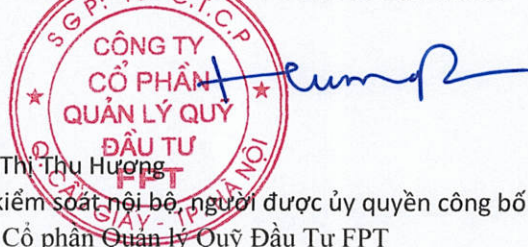 CÔNG TY
CỔ PHẦN
QUẢN LÝ QUỸ
ĐẦU TƯ
FPT
Q. CẦU GIẤY - TP HÀ NỘI
Thị Thu Hương
kiểm soát nội bộ, người được ủy quyền công bố
Cổ phần Quản lý Quỹ Đầu Tư FPT